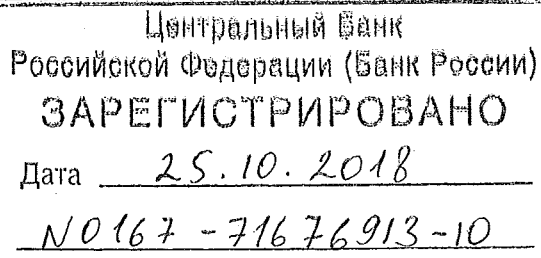 Центральный Банк
Российской Федерации (Банк России)
ЗАРЕГИСТРИРОВАНО
Дата 25.10.2018
N0167-71676913-10